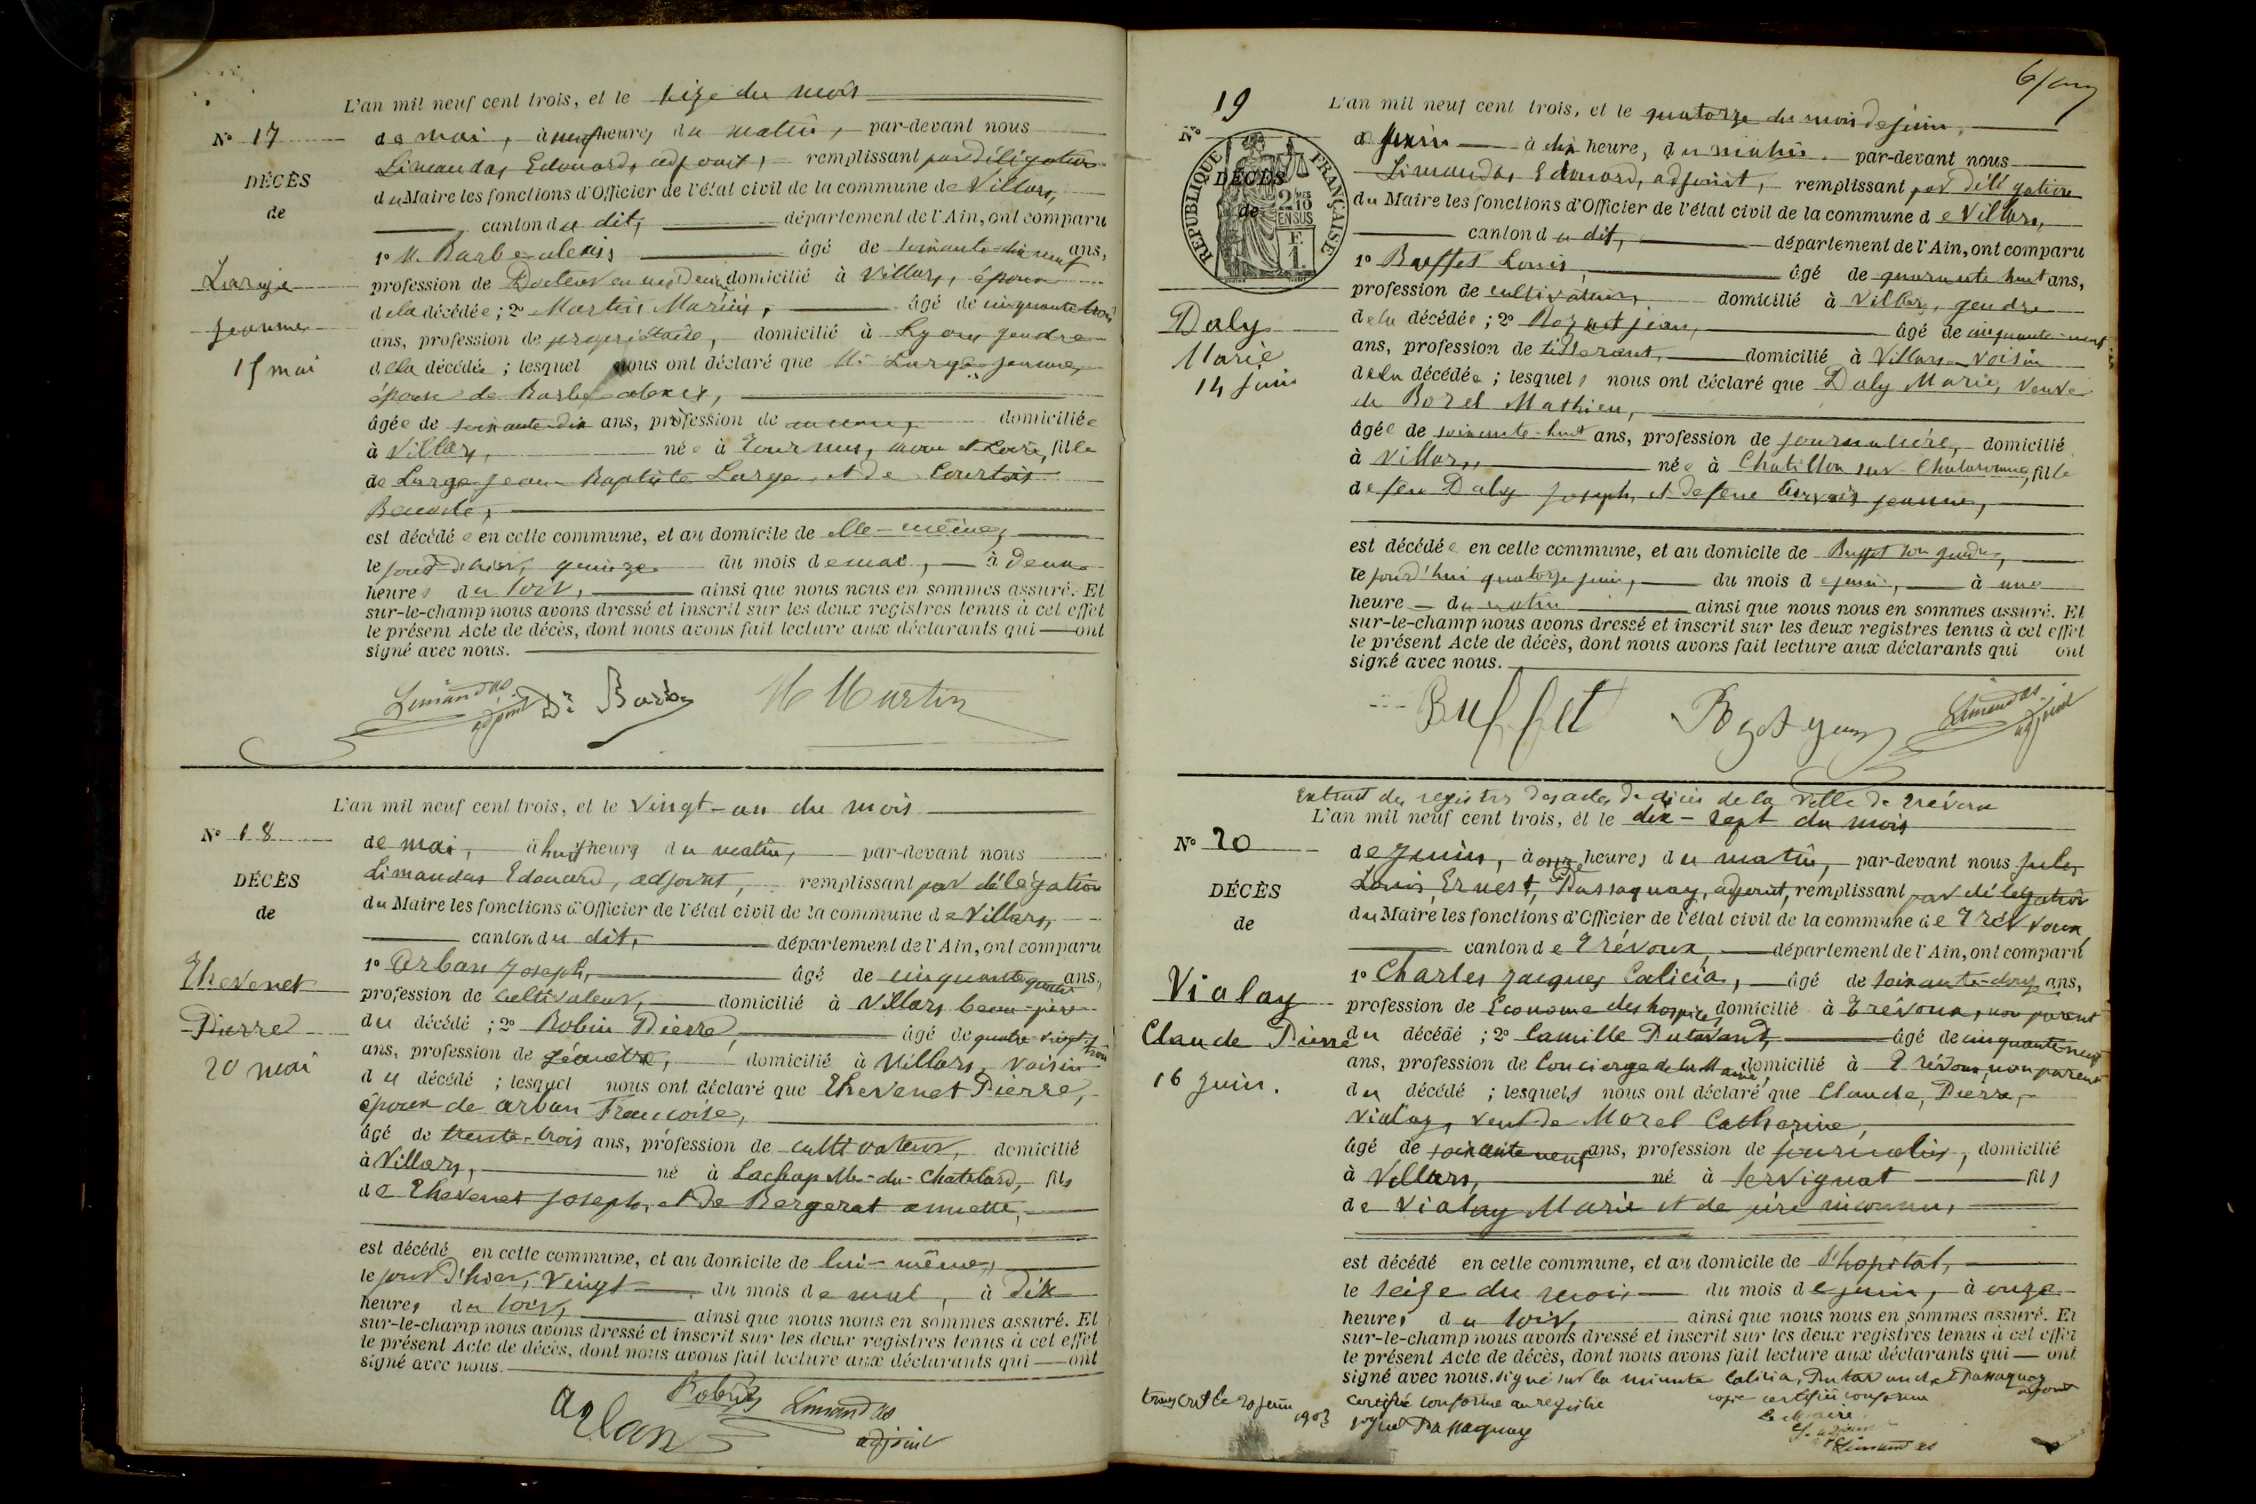 L'an mil neuf cent trois, et le seize du mois
N° 17
de mai, à neuf heures du matin, par-devant nous
Limandas Edouard, adjoint, remplissant par délégation
DÉCÈS
du Maire les fonctions d'Officier de l'état civil de la commune de Villars,
de
canton du dit, département de l'Ain, ont comparu
1° M. Barbe alexis âgé de soixante-dix neuf ans,
Large
profession de Docteur en médecine domicilié à Villars, époux
de la décédée; 2° Martin Marius, âgé de cinquante trois
Jeanne
ans, profession de propriétaire, domicilié à Lyon, gendre
15 mai
de la décédée; lesquel nous ont déclaré que Large Jeanne,
épouse de Barbe alexis,
âgée de soixante-dix ans, profession de aucune, domiciliée
à Villars, née à Tournus, Saône et Loire, fille
de Large Jean-Baptiste Large, et de Courtois
Benoite,
est décédée en cette commune, et au domicile de elle-même,
le jour d'hier, quinze du mois de mai, à deux
heures du soir, ainsi que nous nous en sommes assuré. Et
sur-le-champ nous avons dressé et inscrit sur les deux registres tenus à cet effet
le présent Acte de décès, dont nous avons fait lecture aux déclarants qui ont
signé avec nous.
Limandas adjoint Dr Barbe M Martin
L'an mil neuf cent trois, et le vingt-un du mois
N° 18
de mai, à huit heures du matin, par-devant nous
Limandas Edouard, adjoint, remplissant par délégation
DÉCÈS
du Maire les fonctions d'Officier de l'état civil de la commune de Villars,
de
canton du dit, département de l'Ain, ont comparu
1° Arban Joseph, âgé de cinquante quatre ans,
Thevenet
profession de cultivateur, domicilié à Villars, beau-père
du décédé; 2° Robin Pierre, âgé de quatre-vingt-trois
Pierre
ans, profession de géomètre, domicilié à Villars, voisin
20 mai
du décédé; lesquel nous ont déclaré que Thevenet Pierre,
époux de arban Françoise,
âgé de trente-trois ans, profession de cultivateur, domicilié
à Villars, né à Lachapelle-du-Chatelard, fils
de Thevenet Joseph, et de Bergeret annette,
est décédé en cette commune, et au domicile de lui-même,
le jour d'hier, vingt du mois de mai, à dix
heures du soir, ainsi que nous nous en sommes assuré. Et
sur-le-champ nous avons dressé et inscrit sur les deux registres tenus à cet effet
le présent Acte de décès, dont nous avons fait lecture aux déclarants qui ont
signé avec nous.
Arban Robin Limandas
adjoint
19
L'an mil neuf cent trois, et le quatorze du mois de juin,
N°
de Juin à dix heure, du matin par-devant nous
Limandas Edouard, adjoint, remplissant par délégation
RÉPUBLIQUE FRANÇAISE
DÉCÈS
du Maire les fonctions d'Officier de l'état civil de la commune de Villars,
de
2/10 EN SUS
canton du dit, département de l'Ain, ont comparu
1° Buffet Louis, âgé de quarante huit ans,
profession de cultivateur, domicilié à Villars, gendre
Daly
de la décédée; 2° jean, âgé de cinquante-neuf
Marie
ans, profession de tisserant, domicilié à Villars voisin
14 juin
de la décédée; lesquels nous ont déclaré que Daly Marie, veuve
de Borel Mathieu,
âgée de soixante-huit ans, profession de journalière, domicilié
à Villars, née à Chatillon sur Chalaronne, fille
de feu Daly Joseph, et de feue jeanne,
est décédée en cette commune, et au domicile de Buffet son gendre,
le jourd'hui quatorze juin, du mois de juin, à une
heure du matin ainsi que nous nous en sommes assuré. Et
sur-le-champ nous avons dressé et inscrit sur les deux registres tenus à cet effet
le présent Acte de décès, dont nous avons fait lecture aux déclarants qui ont
signé avec nous.
Buffet Limandas adjoint
Extrait des registres des actes de décès de la Ville de Trévoux
L'an mil neuf cent trois, et le dix-sept du mois
N° 20
de Juin, à onze heures du matin, par-devant nous Jules
Louis, Ernest, Passaquay, adjoint, remplissant par délégation
DÉCÈS
du Maire les fonctions d'Officier de l'état civil de la commune de Trévoux,
de
canton de Trévoux, département de l'Ain, ont comparu
1° Charles Jacques Calicia, âgé de soixante-douze ans,
Vialay
profession de Econome des hospices, domicilié à Trévoux, non parent
Claude Pierre
du décédé; 2° Camille Dutavand, âgé de cinquante-neuf
ans, profession de Concierge de la Mairie, domicilié à Trévoux, non parent
16 Juin.
du décédé; lesquels nous ont déclaré que Claude, Pierre,
Vialay, veuf de Morel Catherine,
âgé de soixante neuf ans, profession de journalier, domicilié
à Villars, né à Servignat fils
de Vialay Marie et de père inconnu,
est décédé en cette commune, et au domicile de l'hopital,
le seize du mois du mois de juin, à onze
heures du soir, ainsi que nous nous en sommes assuré. Et
sur-le-champ nous avons dressé et inscrit sur les deux registres tenus à cet effet
le présent Acte de décès, dont nous avons fait lecture aux déclarants qui ont
signé avec nous. signé sur la minute Calicia, Dutavand et Passaquay adjoint
transcrit le 20 juin 1903
Certifié conforme au registre
signé Passaquay
copie certifiée conforme
Le Maire
Limandas